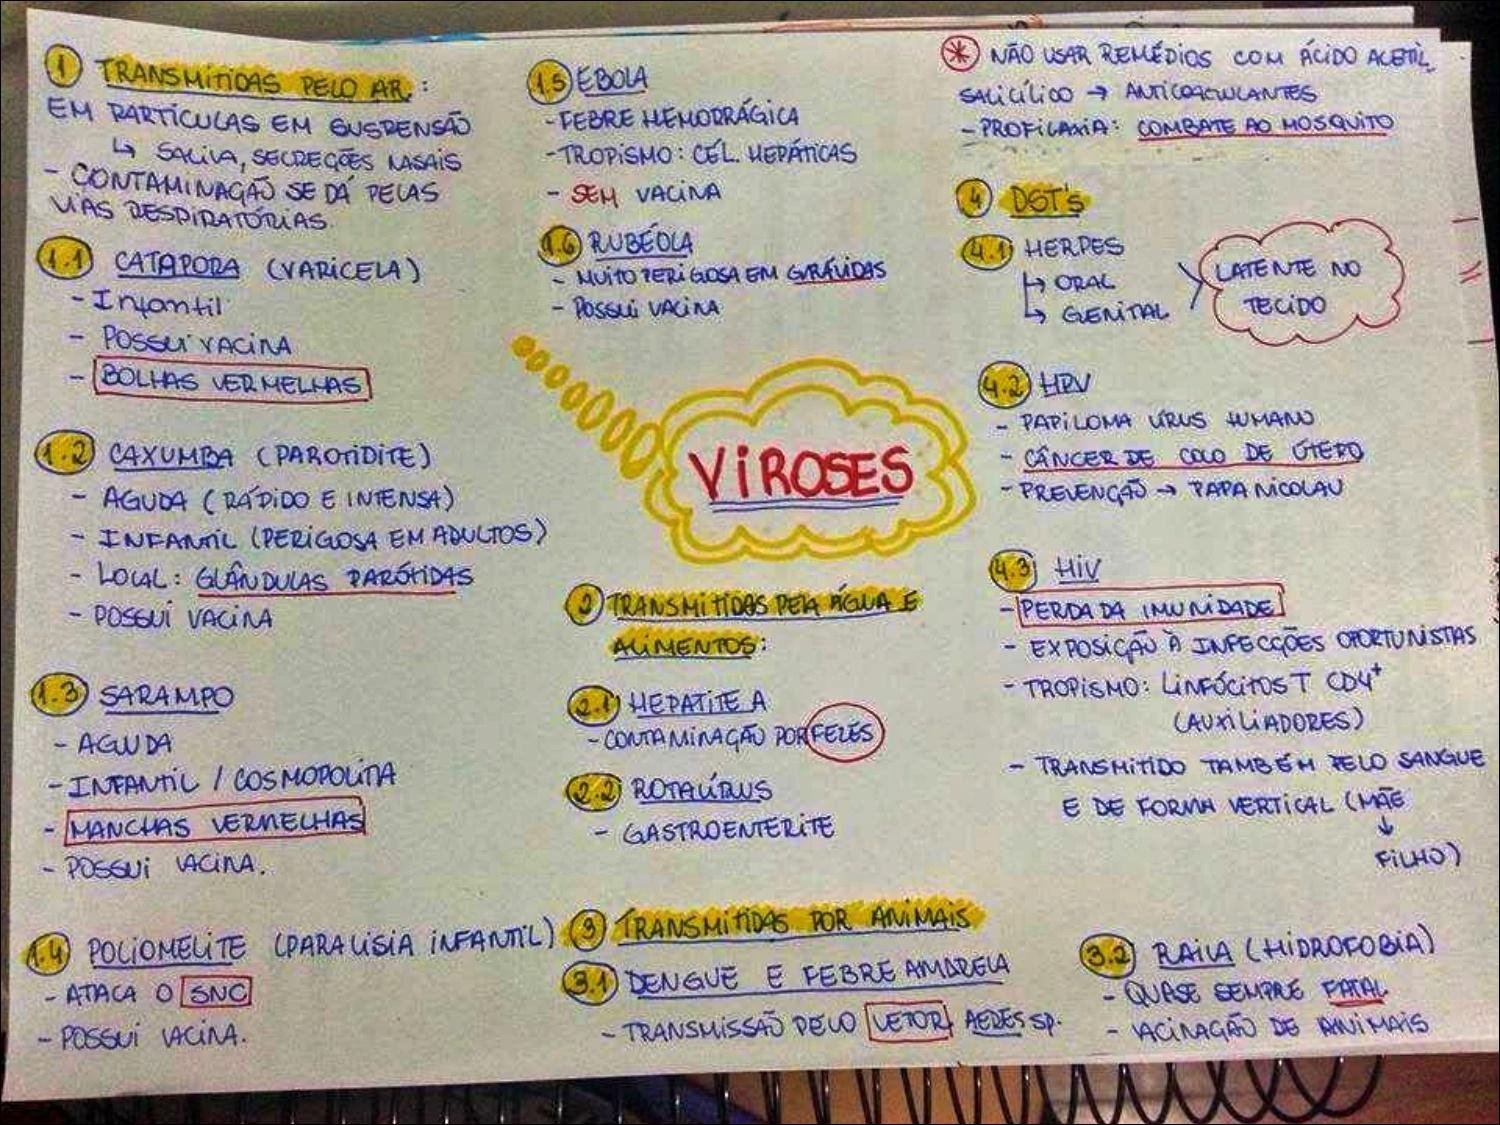 1 TRANSMITIDAS PELO AR:
EM PARTÍCULAS EM SUSPENSÃO
↳ SALIVA, SECREÇÕES NASAIS
- CONTAMINAÇÃO SE DÁ PELAS
VIAS RESPIRATÓRIAS.
1.1 CATAPORA (VARICELA)
- Infantil
- POSSUI VACINA
- BOLHAS VERMELHAS
1.2 CAXUMBA (PAROTIDITE)
- AGUDA (RÁPIDO E INTENSA)
- INFANTIL (PERIGOSA EM ADULTOS)
- LOCAL: GLÂNDULAS PARÓTIDAS
- POSSUI VACINA
1.3 SARAMPO
- AGUDA
- INFANTIL / COSMOPOLITA
- MANCHAS VERMELHAS
- POSSUI VACINA.
1.4 POLIOMELITE (PARALISIA INFANTIL)
- ATACA O SNC
- POSSUI VACINA.
1.5 EBOLA
- FEBRE HEMORRÁGICA
- TROPISMO: CÉL. HEPÁTICAS
- SEM VACINA
1.6 RUBÉOLA
- MUITO PERIGOSA EM GRÁVIDAS
- POSSUI VACINA
VIROSES
2 TRANSMITIDAS PELA ÁGUA E
ALIMENTOS:
2.1 HEPATITE A
- CONTAMINAÇÃO POR FEZES
2.2 ROTAVÍRUS
- GASTROENTERITE
3 TRANSMITIDAS POR ANIMAIS
3.1 DENGUE E FEBRE AMARELA
- TRANSMISSÃO PELO VETOR AEDES SP.
3.2 RAIVA (HIDROFOBIA)
- QUASE SEMPRE FATAL
- VACINAÇÃO DE ANIMAIS
* NÃO USAR REMÉDIOS COM ÁCIDO ACETIL
SALICÍLICO → ANTICOAGULANTES
- PROFILAXIA: COMBATE AO MOSQUITO
4 DST's
4.1 HERPES
↳ ORAL
↳ GENITAL
LATENTE NO
TECIDO
4.2 HPV
- PAPILOMA VÍRUS HUMANO
- CÂNCER DE COLO DE ÚTERO
- PREVENÇÃO → PAPANICOLAU
4.3 HIV
- PERDA DA IMUNIDADE
- EXPOSIÇÃO À INFECÇÕES OPORTUNISTAS
- TROPISMO: LINFÓCITOS T CD4⁺
(AUXILIADORES)
- TRANSMITIDO TAMBÉM PELO SANGUE
E DE FORMA VERTICAL (MÃE
↓
FILHO)